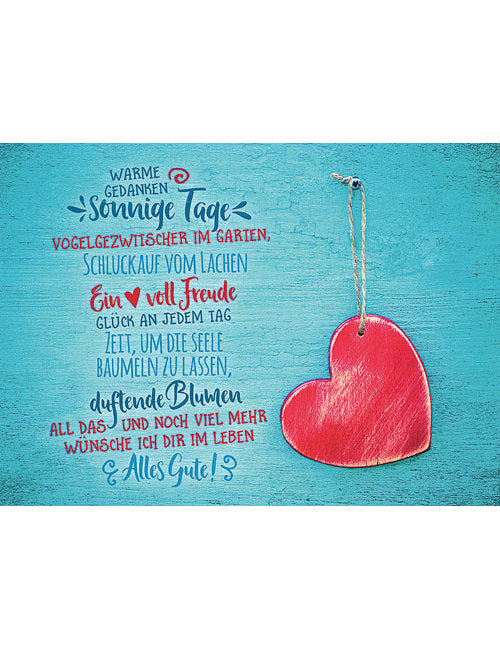 WARME
GEDANKEN
Sonnige Tage
VOGELGEZWITSCHER IM GARTEN,
SCHLUCKAUF VOM LACHEN
Ein ♥ voll Freude
GLÜCK AN JEDEM TAG
ZEIT, UM DIE SEELE
BAUMELN ZU LASSEN,
duftende Blumen
ALL DAS UND NOCH VIEL MEHR
WÜNSCHE ICH DIR IM LEBEN
Alles Gute!